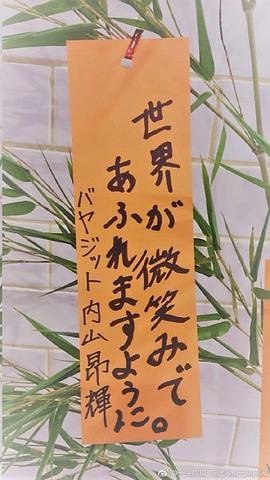 世界が微笑みで
あふれますように。
バヤジット 内山昂輝